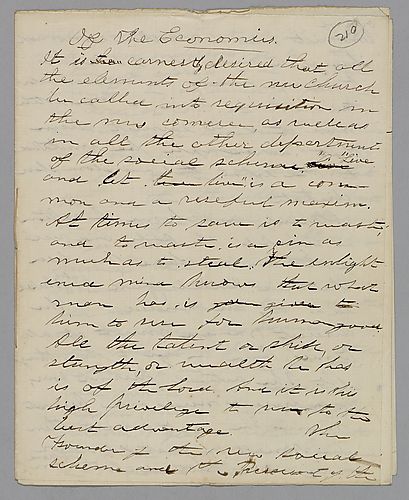 210
Of The Economics.
It is earnestly desired that all
the elements of the new Church
be called into requisition in
the new commerce, as well as
in all the other department
of the social scheme. "Live
and let live" is a com-
mon and a useful maxim.
At times to save is to waste,
and to waste is a sin as
much as to steal. The enlight
ened mind knows that what
man has is given to
him to use for human good.
All the talent or skill, or
strength, or wealth he has
is of the Lord and it is his
high privilege to use to the
best advantage. The
Founder of the new social
scheme and the President of the